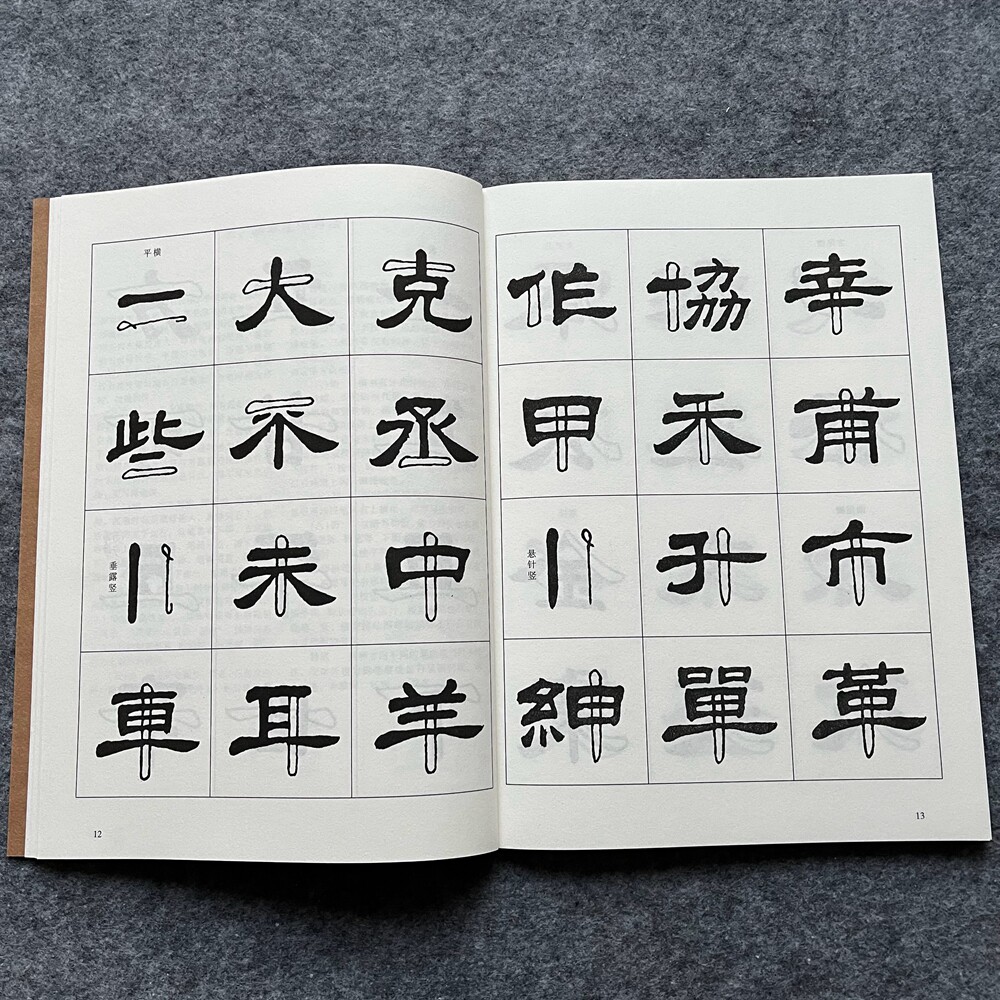 平横
一 大 克
些 不 丞
垂露竖
丨 未 中
車 耳 羊
12
作 協 幸
甲 禾 甫
悬针竖
丨 升 市
紳 單 革
13